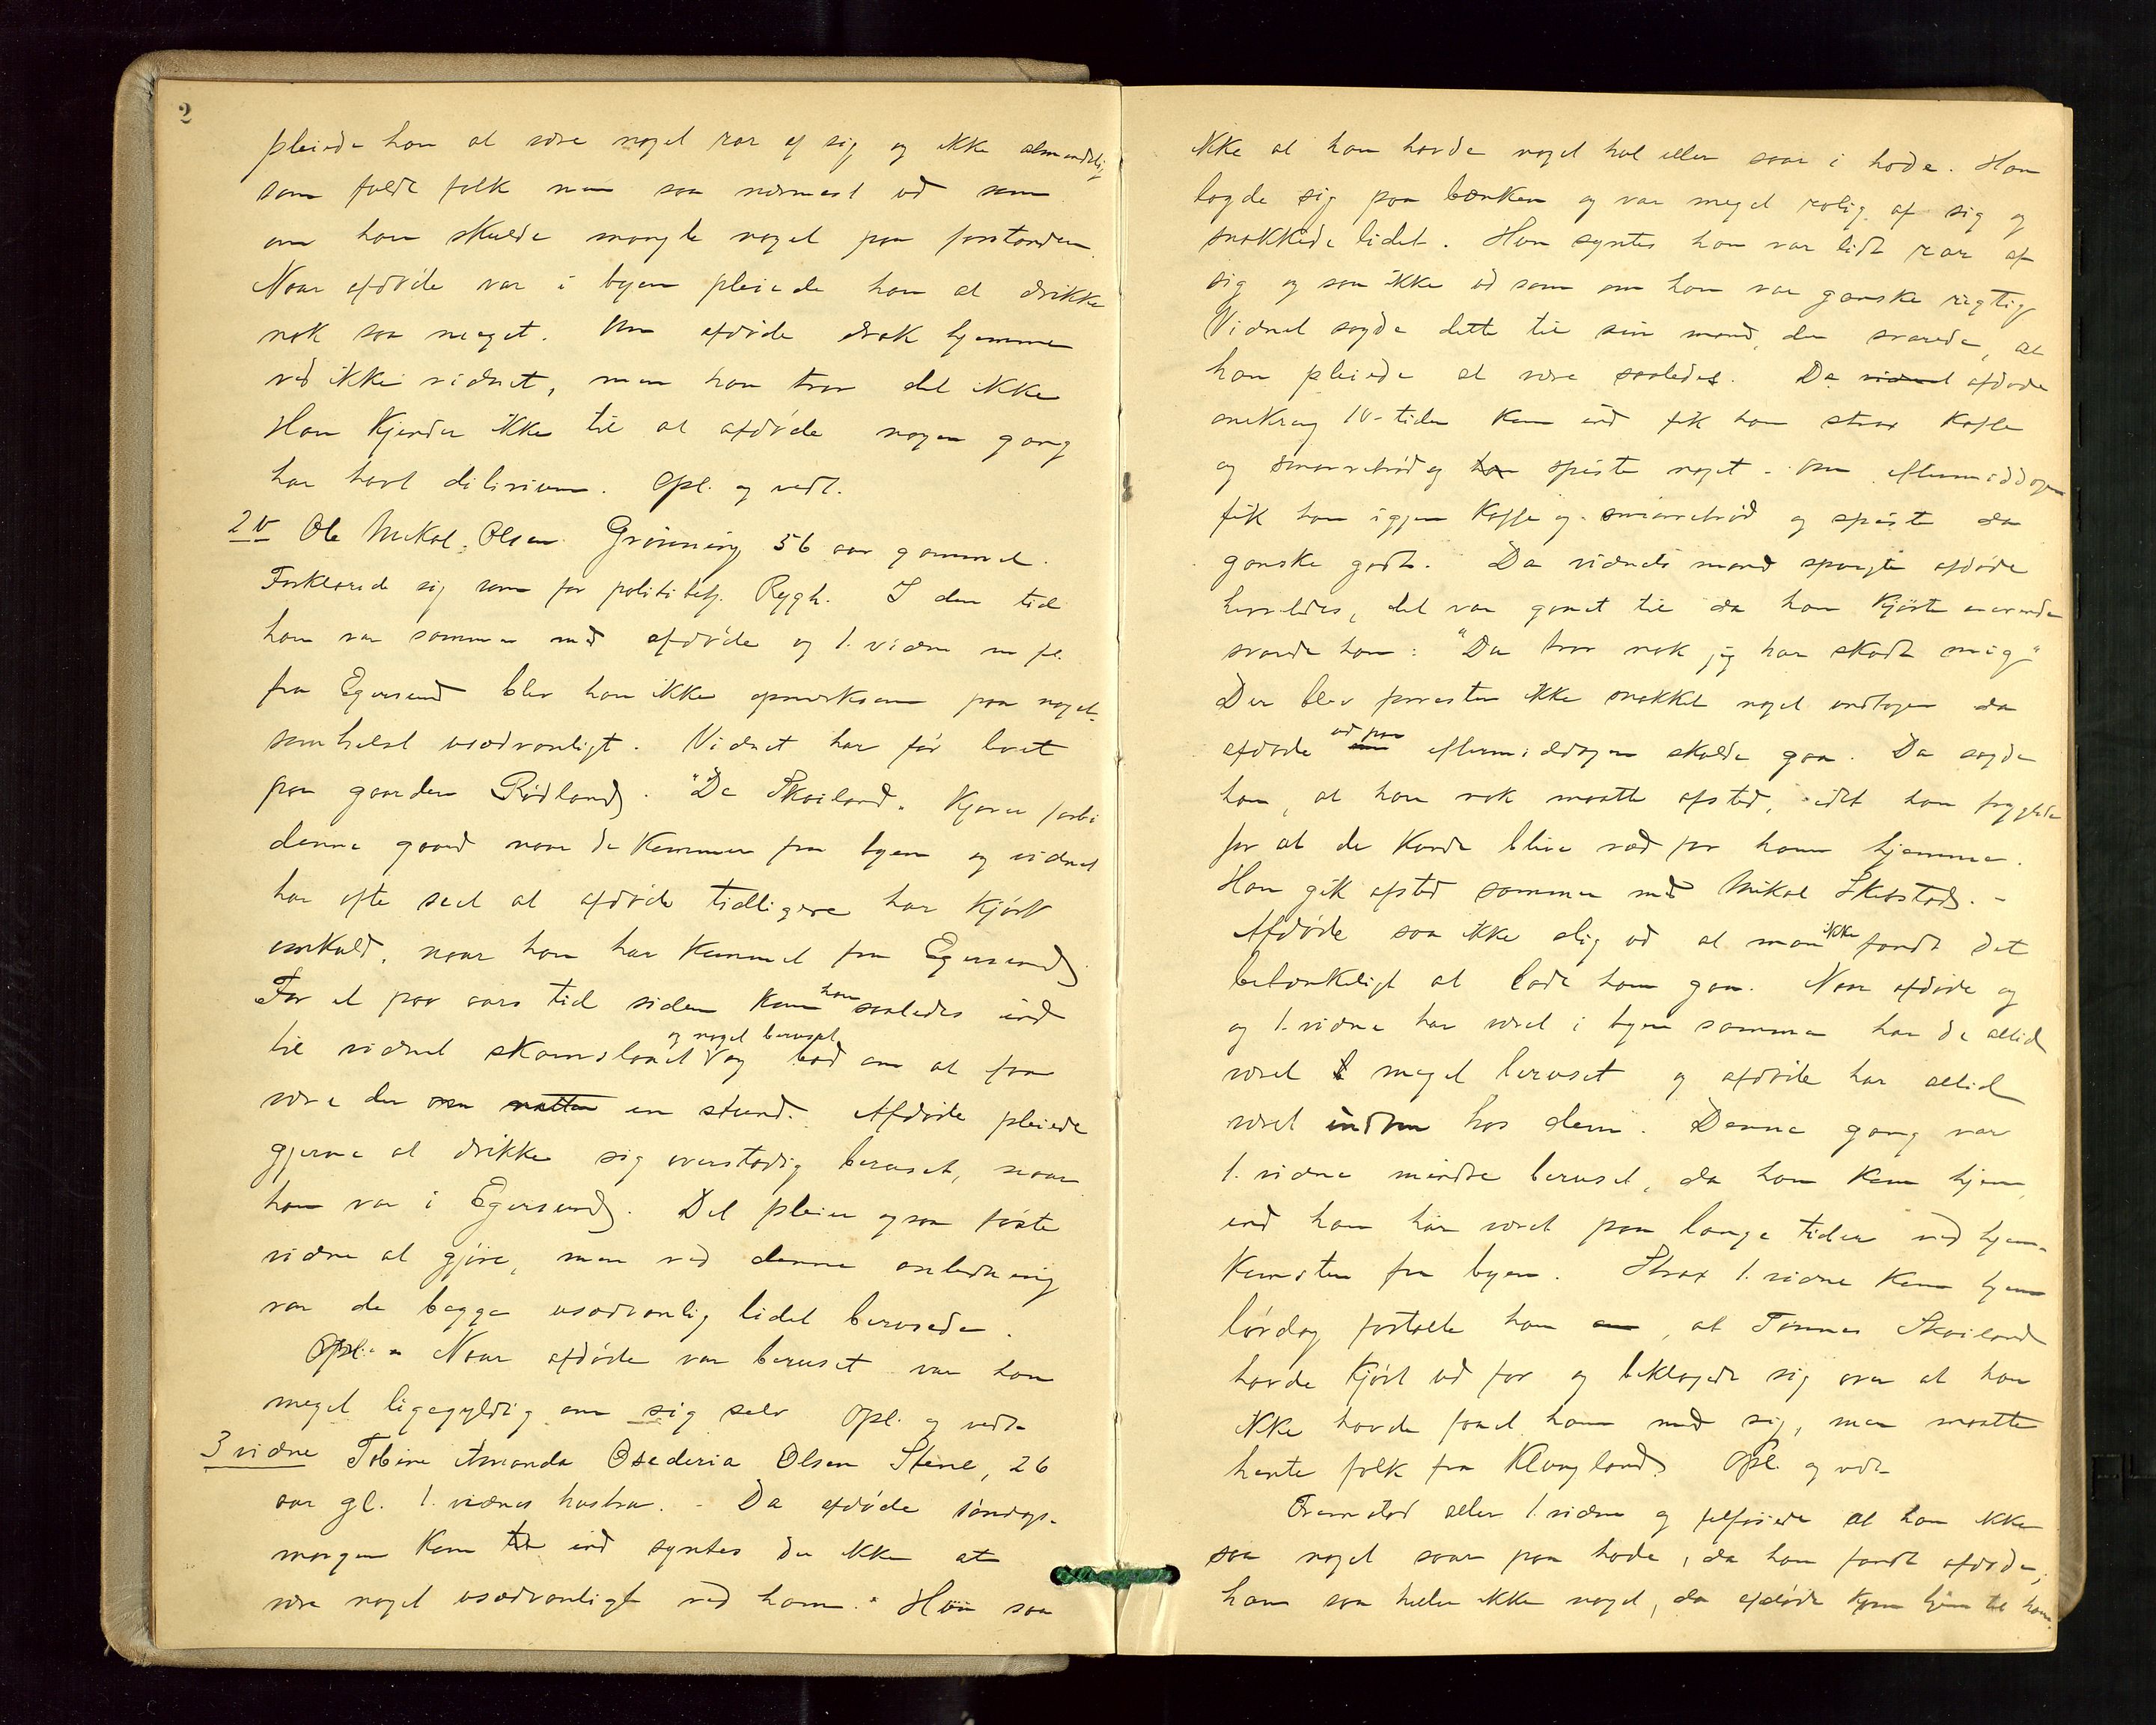 2
pleiede han at være noget rar af sig og ikke almindelig
som fulde folk men saa nærmest ud som
om han skulde mangle noget paa forstanden.
Naar afdøde var i byen pleiede han at drikke
nok saa meget. Om afdøde drak hjemme
ved ikke vidnet, men han tror det ikke
Han kjender ikke til at afdøde nogen gang
har havt dilirium. Opl. og vedt.
2 v Ole Mikal Olsen Grønning 56 aar gammel.
Forklarede sig som for politibetj. Rygh. I den tid
han var sammen med afdøde og 1. vidne m fl.
fra Egersund blev han ikke opmerksom paa noget-
somhelst usædvanligt. Vidnet har før boet
paa gaarden Rødland. De Skailand. Kjører forbi
denne gaard naar de kommer fra byen og vidnet
har ofte seet at afdøde tidligere har kjørt
omkuld, naar han har kommet fra Egersund.
For et par aars tid siden kom han saaledes ind
til vidnet skamslaaet og noget beruset og bad om at faa
være der om natten en stund. Afdøde pleiede
gjerne at drikke sig overstadig beruset, naar
han var i Egersund. Det pleier ogsaa første
vidne at gjøre, men ved denne anledning
var de begge usædvanlig lidet berusede.
Opl. - Naar afdøde var beruset var han
meget ligegyldig om sig selv Opl. og vedt.
3 vidne Tobine Amanda Osederia Olsen Stene, 26
aar gl. 1. vidnes hustru. - Da afdøde søndags-
morgen kom ind syntes der ikke at
være noget usædvanligt ved ham. Hun saa
ikke at han havde noget hul eller saar i hode. Han
lagde sig paa bænken og var meget rolig af sig og
snakkede lidet. Hun syntes han var lidt rar af
sig og saa ikke ud som om han var ganske rigtig
Vidnet sagde dette til sin mand, der svarede, at
han pleiede at være saaledes. Da vidnet afdøde
omkring 10-tiden kom ind fik han strax kaffe
og smørrebrød og han spiste noget - Om eftermiddagen
fik han igjen kaffe og smørrebrød og spiste da
ganske godt. Da vidnets mand spurgte afdøde
hvorledes, det var gaaet til da han kjørte
svarede han: "Du tror nok jeg har skadt mig"
Der blev forresten ikke snakket noget undtagen da
afdøde ud paa eftermiddagen skulde gaa. Da sagde
han, at han nok maatte afsted, idet han frygtede
for at de kunde blive ræd for ham hjemme.
Han gik afsted sammen med Mikal Skibstad. -
Afdøde saa ikke slig ud at man ikke fandt det
betænkeligt at lade ham gaa. Naar afdøde og
og 1. vidne har været i byen sammen har de altid
været meget beruset og afdøde har altid
været indom hos dem. Denne gang var
1. vidne mindre beruset, da han kom hjem,
end han har været paa lange tider ved hjem-
komsten fra byen. Strax 1. vidne kom hjem
lørdag fortalte han, at Tønnes Skailand
havde kjørt ud for og beklagede sig over at han
ikke havde faaet ham med sig, men maatte
hente folk fra Klungland. Opl. og vdt.
Fremstod atter 1. vidne og tilføiede at han ikke
saa noget saar paa hode, da han fandt afdøde;
han saa heller ikke noget, da afdøde kom hjem til ham.